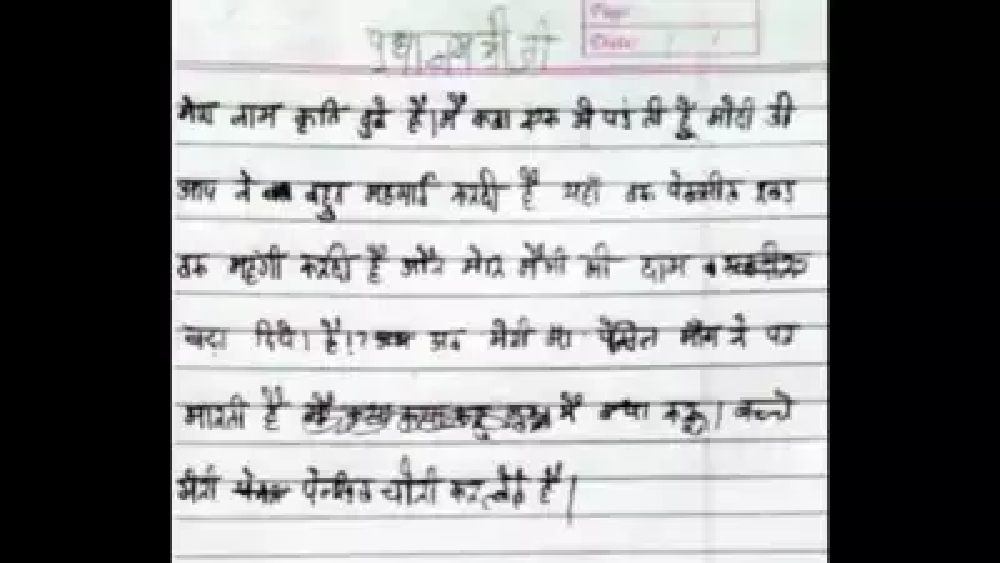 Page:
Date: / /
प्रधानमंत्री जी
मेरा नाम कृति दुबे है। मैं कक्षा एक में पढती हूँ मोदी जी
आप ने बहुत महगाई करदी है यहाँ तक पेनसील रबड़
तक महंगी करदी है और मेरी मैगी की दाम
बढ़ा दिये। है। अब मेरी माँ पेंसिल मांगने पर
मारती है मैं क्या करू। बच्चे
मेरी पेन्सिल चोरी कर लेते है।